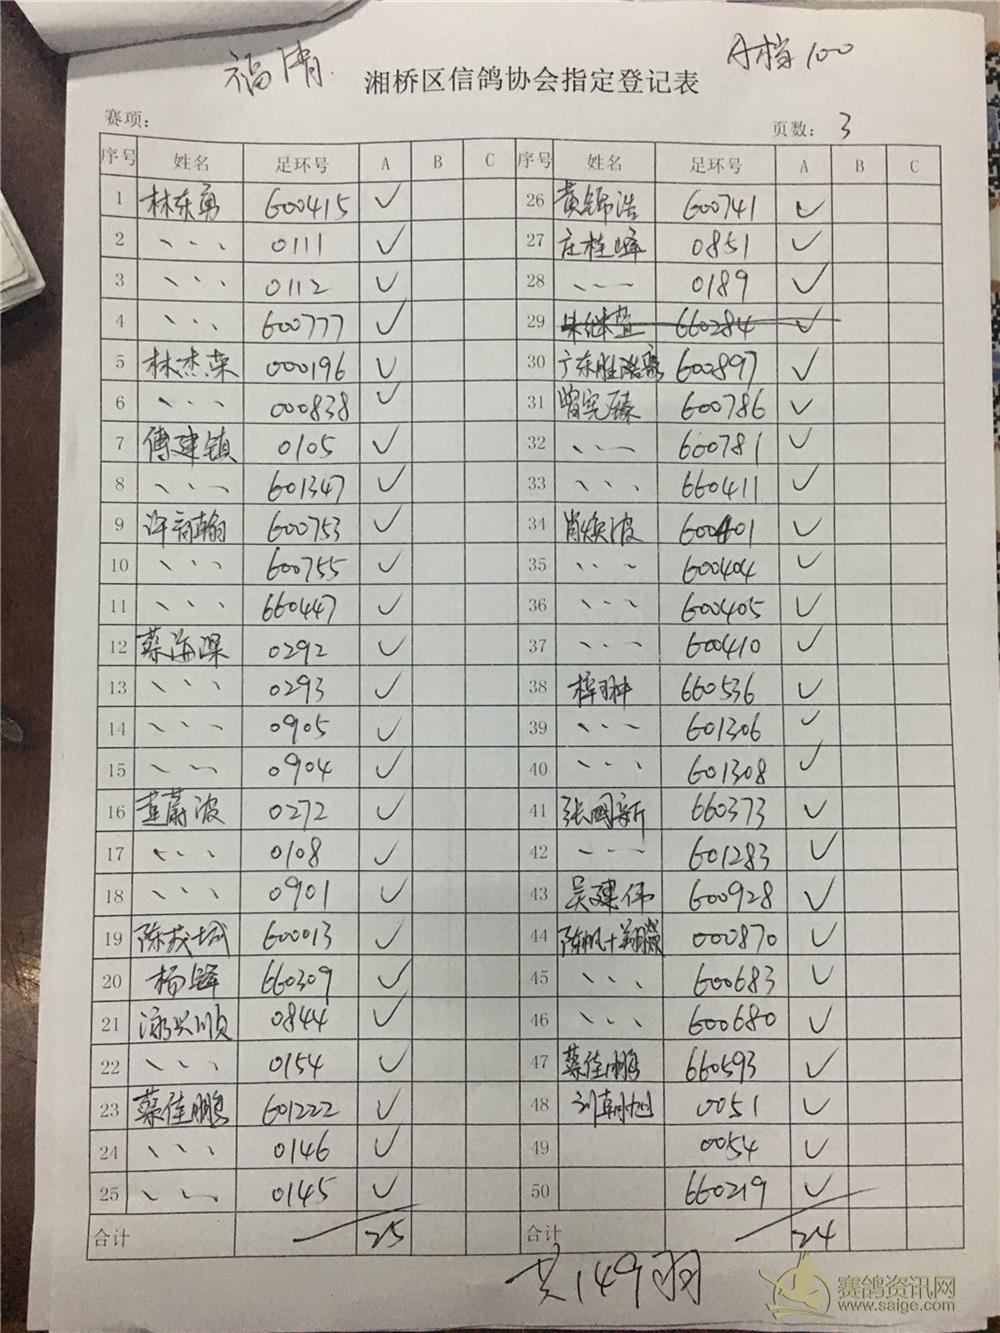 福清
A档100
湘桥区信鸽协会指定登记表
赛项:
页数: 3
序号 姓名 足环号 A B C 序号 姓名 足环号 A B C
1 林东勇 600415 ✓ 26 黄锦浩 600741 ✓
2 、、、 0111 ✓ 27 庄桂峰 0851 ✓
3 、、、 0112 ✓ 28 、、、 0189 ✓
4 、、、 600777 ✓ 29 朱继萱 660284 ✓
5 林杰荣 000196 ✓ 30 广东胜浩豪 600897 ✓
6 、、、 000838 ✓ 31 曾宪臻 600786 ✓
7 傅建镇 0105 ✓ 32 、、、 600781 ✓
8 、、、 601347 ✓ 33 、、、 660411 ✓
9 许翰 600753 ✓ 34 肖焕波 600401 ✓
10 、、、 600755 ✓ 35 、、、 600404 ✓
11 、、、 660447 ✓ 36 、、、 600405 ✓
12 蔡海深 0292 ✓ 37 、、、 600410 ✓
13 、、、 0293 ✓ 38 梓翀 660536 ✓
14 、、、 0905 ✓ 39 、、、 601306 ✓
15 、、、 0904 ✓ 40 、、、 601308 ✓
16 蔚波 0272 ✓ 41 张国新 660373 ✓
17 、、、 0108 ✓ 42 、、、 601283 ✓
18 、、、 0901 ✓ 43 吴建伟 600928 ✓
19 陈茂城 600013 ✓ 44 陈帆+翔 000870 ✓
20 杨峰 660309 ✓ 45 、、、 600683 ✓
21 泳兴顺 0844 ✓ 46 、、、 600680 ✓
22 、、、 0154 ✓ 47 蔡佳鹏 660593 ✓
23 蔡佳鹏 601222 ✓ 48 刘朝旭 0051 ✓
24 、、、 0146 ✓ 49 0054 ✓
25 、、、 0145 ✓ 50 660219 ✓
合计 25 合计 24
共149羽
赛鸽资讯网
www.saige.com